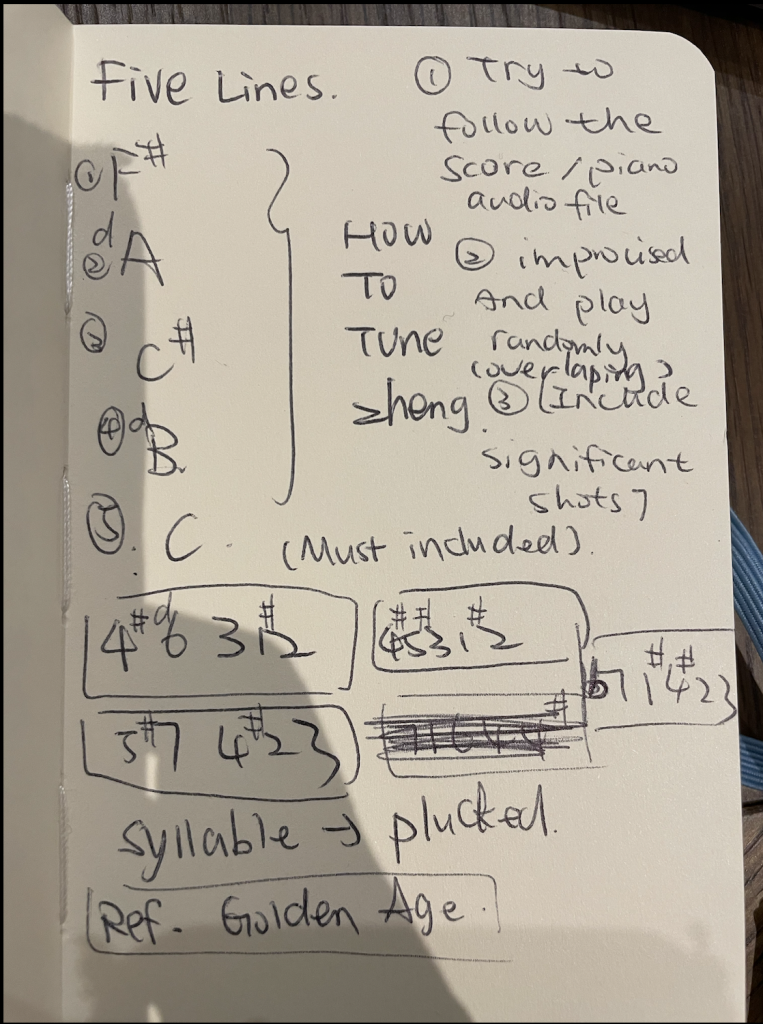 Five Lines.
① F#
d
② A
③ C#
④ d B.
⑤. C. (Must included).
HOW
TO
TUNE
zheng.
① Try to
follow the
score / piano
audio file
② improvised
And play
randomly
(overlaping)
③ (Include
significant
shots)
4# d6 3 1#2
4#5#3 1#2
b7 1#4#23
5#7 4#23
syllable → plucked.
Ref. Golden Age.